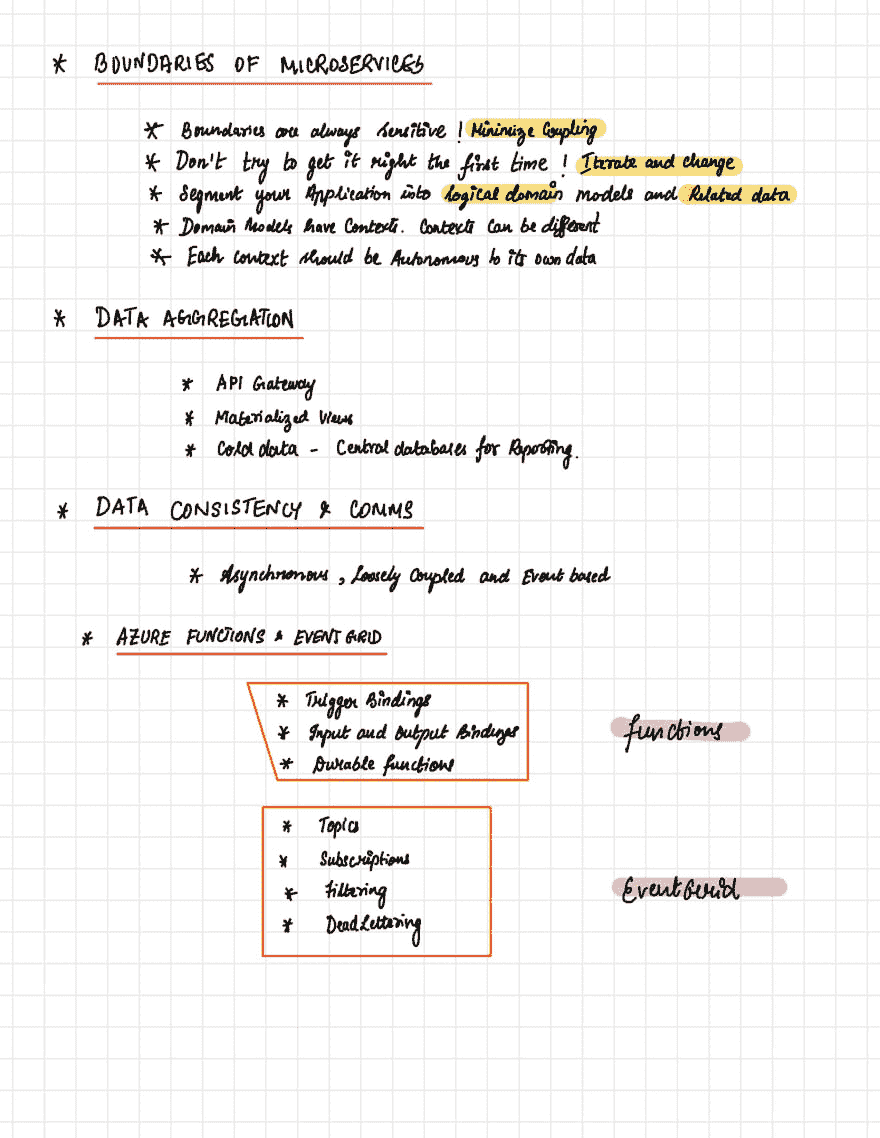 * BOUNDARIES OF MICROSERVICES
* Boundaries are always sensitive ! Minimize Coupling
* Don't try to get it right the first time ! Iterate and change
* Segment your Application into logical domain models and Related data
* Domain Models have Contexts. Contexts can be different
* Each context should be Autonomous to its own data
* DATA AGGREGATION
* API Gateway
* Materialized Views
* Cold data - Central databases for Reporting.
* DATA CONSISTENCY & COMMS
* Asynchronous, Loosely Coupled and Event based
* AZURE FUNCTIONS & EVENT GRID
* Trigger Bindings
* Input and Output Bindings
* Durable functions
functions
* Topics
* Subscriptions
* Filtering
* Dead Lettering
Event Grid